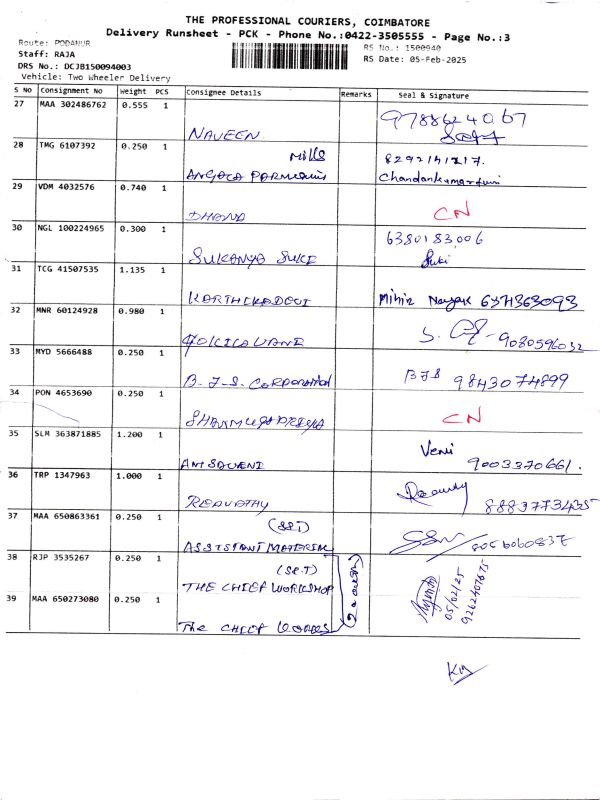 THE PROFESSIONAL COURIERS, COIMBATORE
Delivery Runsheet - PCK - Phone No.:0422-3505555 - Page No.:3
Route: PODANUR
RS No.: 1500940
Staff: RAJA
RS Date: 05-Feb-2025
DRS No.: DCJB150094003
Vehicle: Two Wheeler Delivery
S No Consignment No Weight PCS Consignee Details Remarks Seal & Signature
27 MAA 302486762 0.555 1
NAVEEN 9788624067
28 TMG 6107392 0.250 1
Mills 8292141217.
ANGALA Chandankumar
29 VDM 4032576 0.740 1
DHANA CN
30 NGL 100224965 0.300 1
6380183006
SUKANYA SUKI Suki
31 TCG 41507535 1.135 1
KARTHIKADEVI Mihir Nayak 6371363093
32 MNR 60124928 0.980 1
GOKILAVANI 9080596032
33 MYD 5666488 0.250 1
B.J.S. CORPORATION BJS 9843074899
34 PON 4653690 0.250 1
SHANMUGAPRIYA CN
35 SLM 363871885 1.200 1
Veni
9003370661.
36 TRP 1347963 1.000 1
REAVATHY 8883773435
37 MAA 650863361 0.250 1
(S&T)
ASSISTANT MATERIAL 8056060837
38 RJP 3535267 0.250 1
(S&T)
THE CHIEF WORKSHOP
05/02/25
9262407675
39 MAA 650273080 0.250 1
The CHIEF